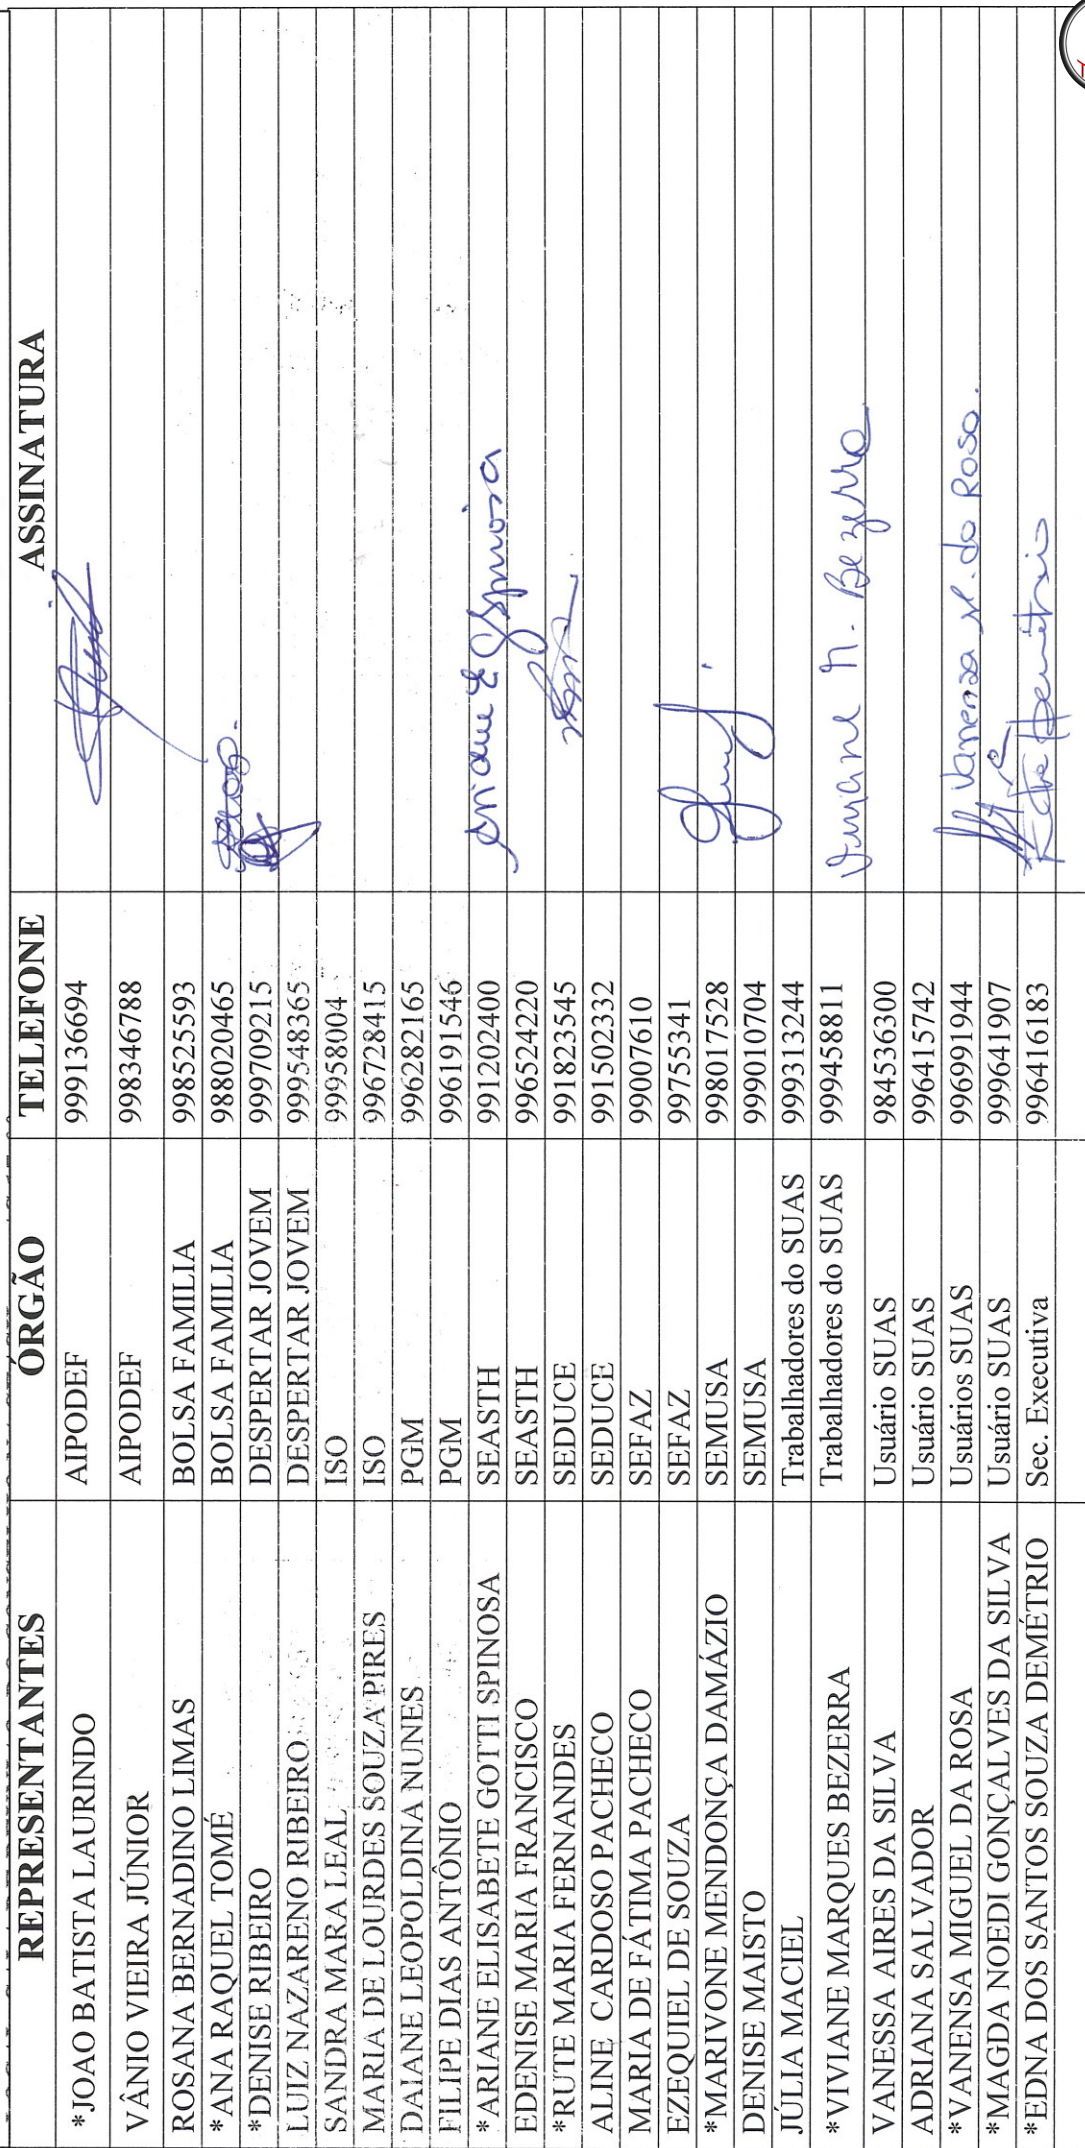 REPRESENTANTES ÓRGÃO TELEFONE ASSINATURA
*JOAO BATISTA LAURINDO AIPODEF 999136694
VÂNIO VIEIRA JÚNIOR AIPODEF 998346788
ROSANA BERNADINO LIMAS BOLSA FAMILIA 998525593
*ANA RAQUEL TOMÉ BOLSA FAMILIA 988020465
*DENISE RIBEIRO DESPERTAR JOVEM 999709215
LUIZ NAZARENO RIBEIRO DESPERTAR JOVEM 999548365
SANDRA MARA LEAL ISO 99958004
MARIA DE LOURDES SOUZA PIRES ISO 996728415
DAIANE LEOPOLDINA NUNES PGM 996282165
FILIPE DIAS ANTÔNIO PGM 996191546
*ARIANE ELISABETE GOTTI SPINOSA SEASTH 991202400 Ariane E Gspinosa
EDENISE MARIA FRANCISCO SEASTH 996524220
*RUTE MARIA FERNANDES SEDUCE 991823545
ALINE CARDOSO PACHECO SEDUCE 991502332
MARIA DE FÁTIMA PACHECO SEFAZ 99007610
EZEQUIEL DE SOUZA SEFAZ 99755341
*MARIVONE MENDONÇA DAMÁZIO SEMUSA 998017528
DENISE MAISTO SEMUSA 999010704
JÚLIA MACIEL Trabalhadores do SUAS 999313244
*VIVIANE MARQUES BEZERRA Trabalhadores do SUAS 999458811 Viviane M. Bezerra
VANESSA AIRES DA SILVA Usuário SUAS 984536300
ADRIANA SALVADOR Usuário SUAS 996415742
*VANENSA MIGUEL DA ROSA Usuários SUAS 996991944 Vanensa M. da Rosa.
*MAGDA NOEDI GONÇALVES DA SILVA Usuário SUAS 999641907
*EDNA DOS SANTOS SOUZA DEMÉTRIO Sec. Executiva 996416183